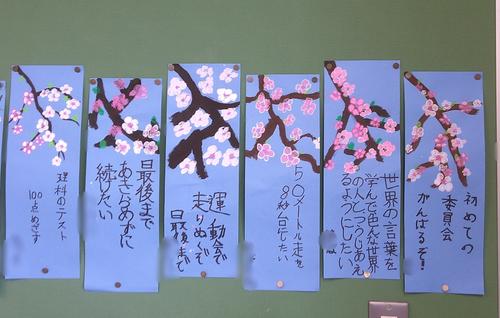 初めての
委員会
がんばるぞ!
世界の言葉を
学んで色んな世界
の人とつうじあえ
るようにしたい
50メートル走を
8秒台にしたい
運動会で
走りぬくぞ
最後まで
最後まで
あきらめずに
続けたい
理科のテスト
100点めざす